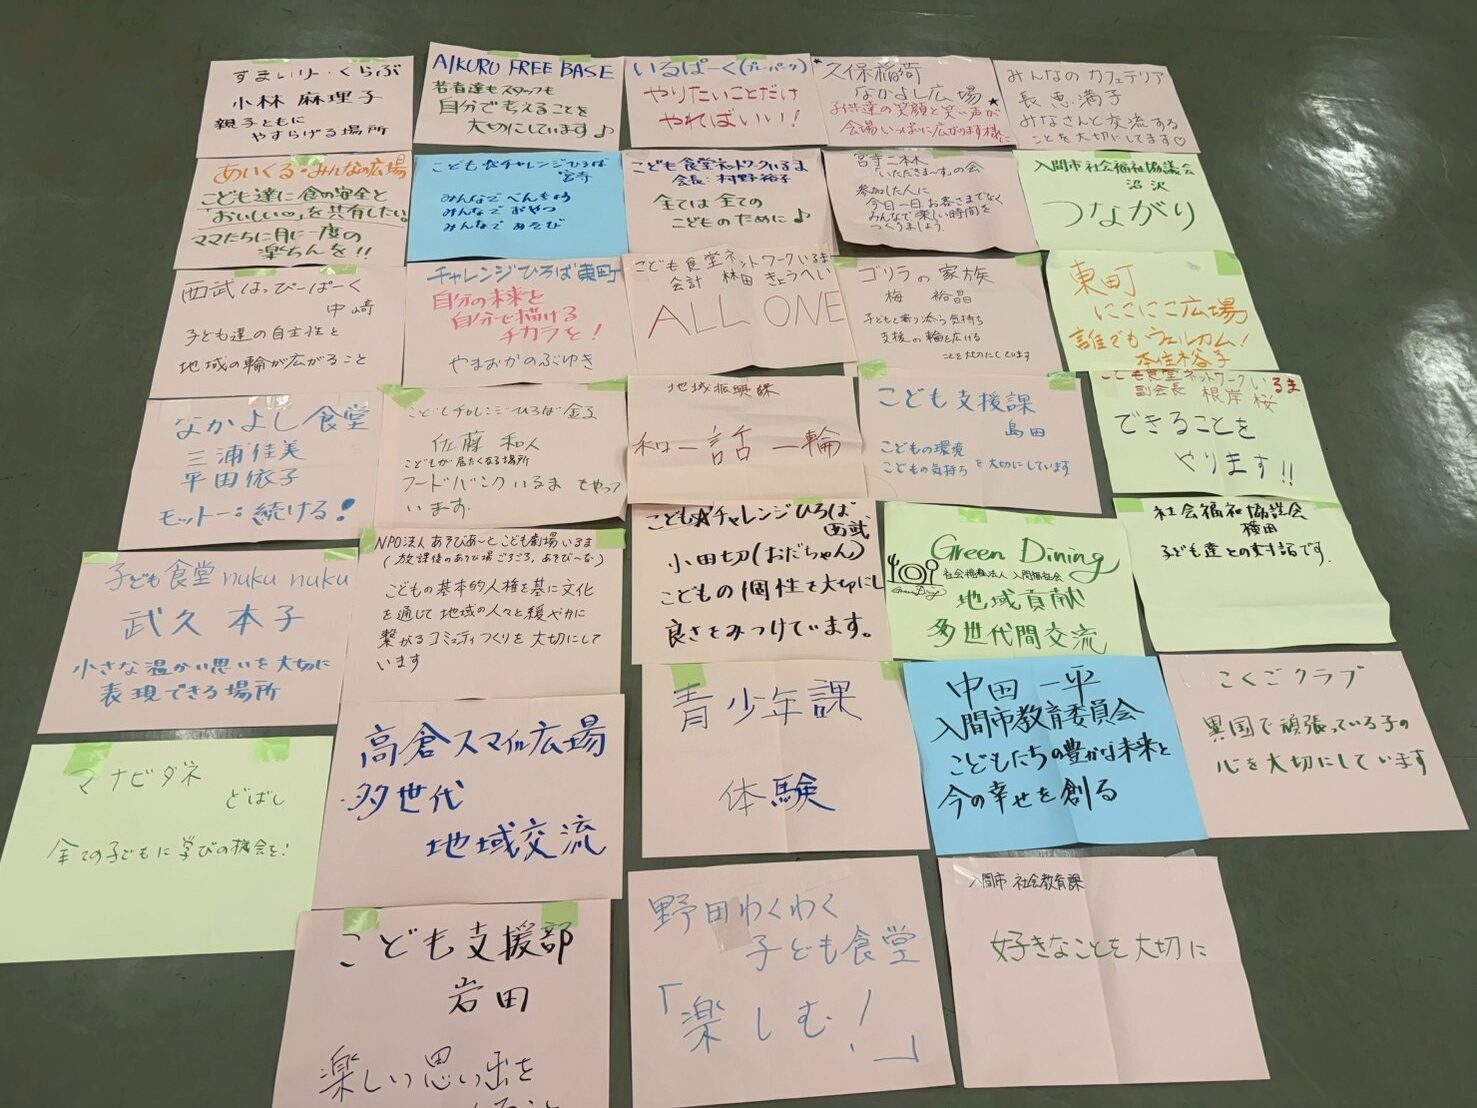 すまいりー・くらぶ
小林 麻理子
親子ともに
やすらげる場所
AIKURU FREE BASE
若者達もスタッフも
自分で考えることを
大切にしています♪
いるぱーく(プレーパーク)
やりたいことだけ
やればいい!
★久保稲荷
なかよし広場★
子供達の笑顔と笑い声が
会場いっぱいに広がります様に
みんなのカフェテリア
長 恵満子
みなさんと交流する
ことを大切にしてます♡
あいくる・みんなの広場
こども達に食の安全と
「おいしい♡」を共有したい。
ママたちに月に一度の
楽ちんを!!
こども☆チャレンジひろば
宮寺
みんなでべんきょう
みんなでおやつ
みんなであそび
こども食堂ネットワークいるま
会長:村野裕子
全ては全ての
こどものために♪
宮寺二本木
「いただきま〜す」の会
参加した人に
今日一日お客さまでなく
みんなで楽しい時間を
つくりましょう
入間市社会福祉協議会
沼沢
つながり
西武はっぴーぱーく
中﨑
子ども達の自主性と
地域の輪が広がること
チャレンジひろば東町
自分の未来を
自分で描ける
チカラを!
やまおかのぶゆき
こども食堂ネットワークいるま
会計 林田 きょうへい
ALL ONE
ゴリラの家族
梅 裕晶
子どもと寄り添う気持ち
支援の輪を広げる
ことを大切にしています
東町
にこにこ広場
誰でもウェルカム!
なかよし食堂
三浦佳美
平田依子
モットー:続ける!
こどもチャレンジひろば金子
佐藤 和人
こどもが居たくなる場所
フードバンクいるまもやって
います.
地域振興課
和一話一輪
こども支援課
島田
こどもの環境
こどもの気持ちを大切にしています
こども食堂ネットワークいるま
副会長 根岸 桜
できることを
やります!!
子ども食堂 nuku nuku
武久 本子
小さな温かい思いを大切に
表現できる場所
NPO法人あそびあ〜とこども劇場いるま
(放課後のあそび場ごろごろ、あそび〜な)
こどもの基本的人権を基に文化
を通じて地域の人々と緩やかに
繋がるコミュニティづくりを大切にして
います
こども☆チャレンジひろば
西武
小田切(おだちゃん)
こどもの個性を大切にし
良さをみつけています。
Green Dining
社会福祉法人 入間福祉会
Green Dining
地域貢献
多世代間交流
社会福祉協議会
横田
子ども達との対話です.
マナビダネ
どばし
全ての子どもに学びの機会を!
高倉スマイル広場
・多世代
地域交流
青少年課
体験
中田 一平
入間市教育委員会
こどもたちの豊かな未来と
今の幸せを創る
こくごクラブ
異国で頑張っている子の
心を大切にしています
こども支援部
岩田
楽しい思い出を
野田わくわく
子ども食堂
「楽しむ!」
入間市 社会教育課
好きなことを大切に